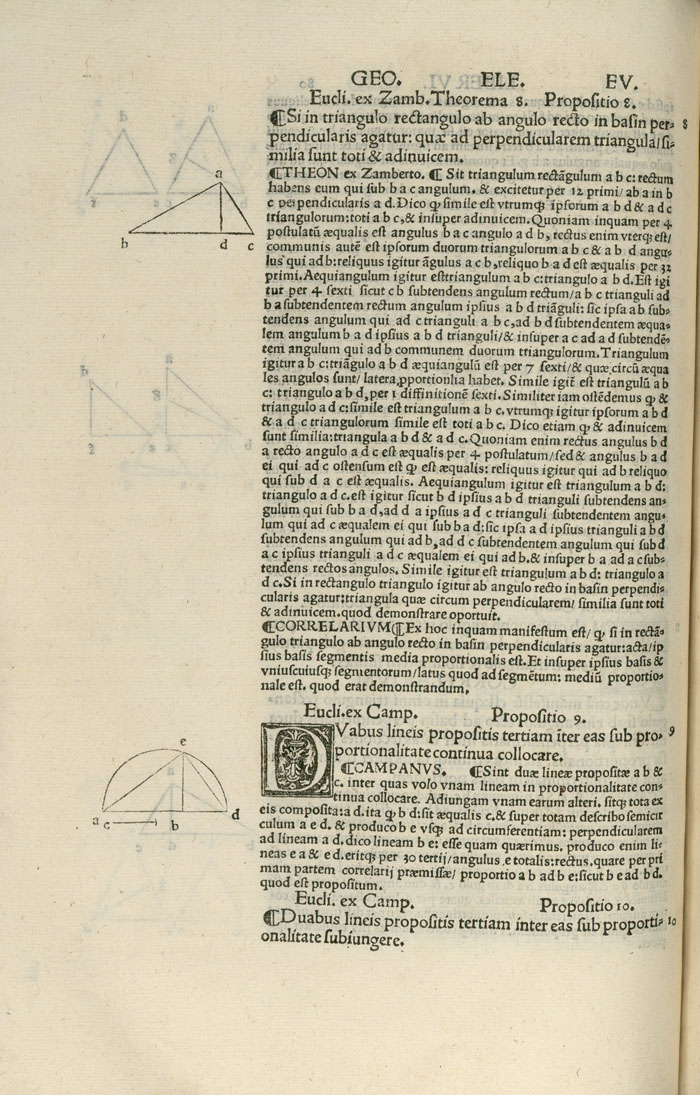 GEO. ELE. EV.
Eucli. ex Zamb. Theorema 8. Propositio 8.
¶Si in triangulo rectangulo ab angulo recto in basin per- 8
pendicularis agatur: quæ ad perpendicularem triangula/si-
milia sunt toti & adinuicem.
¶THEON ex Zamberto. ¶ Sit triangulum rectãgulum a b c: rectum
habens eum qui sub b a c angulum. & excitetur per 12 primi/ ab a in b
c perpendicularis a d. Dico ꝙ simile est vtrumqȝ ipsorum a b d & a d c
triangulorum: toti a b c, & insuper adinuicem. Quoniam inquam per 4
postulatũ æqualis est angulus b a c angulo a d b, rectus enim vterqȝ est/
communis autẽ est ipsorum duorum triangulorum a b c & a b d angu-
lus qui ad b: reliquus igitur ãgulus a c b, reliquo b a d est æqualis per 32
primi. Aequiangulum igitur est triangulum a b c: triangulo a b d. Est igi
tur per 4 sexti sicut c b subtendens angulum rectum/ a b c trianguli ad
b a subtendentem rectum angulum ipsius a b d triãguli: sic ipsa a b sub-
tendens angulum qui ad c trianguli a b c, ad b d subtendentem æqua-
lem angulum b a d ipsius a b d trianguli/ & insuper a c ad a d subtendẽ-
tem angulum qui ad b communem duorum triangulorum. Triangulum
igitur a b c: triãgulo a b d æquiangulũ est per 7 sexti/ & quæ, circũ æqua
les angulos sunt/ latera, ꝓportionlia habet. Simile igit̃ est triangulũ a b
c: triangulo a b d, per 1 diffinitionẽ sexti. Similiter iam ostẽdemus ꝙ &
triangulo a d c: simile est triangulum a b c. vtrumqȝ igitur ipsorum a b d
& a d c triangulorum simile est toti a b c. Dico etiam ꝙ & adinuicem
sunt similia: triangula a b d & a d c. Quoniam enim rectus angulus b d
a recto angulo a d c est æqualis per 4 postulatum/ sed & angulus b a d
ei qui ad c ostensum est ꝙ est æqualis: reliquus igitur qui ad b reliquo
qui sub d a c est æqualis. Aequiangulum igitur est triangulum a b d:
triangulo a d c. est igitur sicut b d ipsius a b d trianguli subtendens an-
gulum qui sub b a d, ad d a ipsius a d c trianguli subtendentem angu-
lum qui ad c æqualem ei qui sub b a d: sic ipsa a d ipsius trianguli a b d
subtendens angulum qui ad b, ad d c subtendentem angulum qui sub d
a c ipsius trianguli a d c æqualem ei qui ad b. & insuper b a ad a c sub-
tendens rectos angulos. Simile igitur est triangulum a b d: triangulo a
d c. Si in rectangulo triangulo igitur ab angulo recto in basin perpendi-
cularis agatur: triangula quæ circum perpendicularem/ similia sunt toti
& adinuicem. quod demonstrare oportuit.
¶CORRELARIVM ¶Ex hoc inquam manifestum est/ ꝙ si in rectã-
gulo triangulo ab angulo recto in basin perpendicularis agatur: acta/ip
sius basis segmentis media proportionalis est. Et insuper ipsius basis &
vniuscuiusqȝ segmentorum/ latus quod ad segmẽtum: mediũ proportio-
nale est. quod erat demonstrandum.
Eucli. ex Camp. Propositio 9.
DVabus lineis propositis tertiam ĩter eas sub pro- 9
portionalitate continua collocare.
¶CAMPANVS. ¶Sint duæ lineæ propositæ a b &
c. inter quas volo vnam lineam in proportionalitate con-
tinua collocare. Adiungam vnam earum alteri. sitqȝ tota ex
eis composita: a d. ita ꝙ b d: sit æqualis c. & super totam describo semicir
culum a e d. & produco b e vsqȝ ad circumferentiam: perpendicularem
ad lineam a d. dico lineam b e: esse quam quærimus. produco enim li-
neas e a & e d. eritqȝ per 30 tertij/ angulus e totalis: rectus. quare per pri
mam partem correlarij præmissæ/ proportio a b ad b e: sicut b e ad b d.
quod est propositum.
Eucli. ex Camp. Propositio 10.
¶Duabus lineis propositis tertiam inter eas sub proporti- 10
onalitate subiungere.
a
b d c
e
a c b d